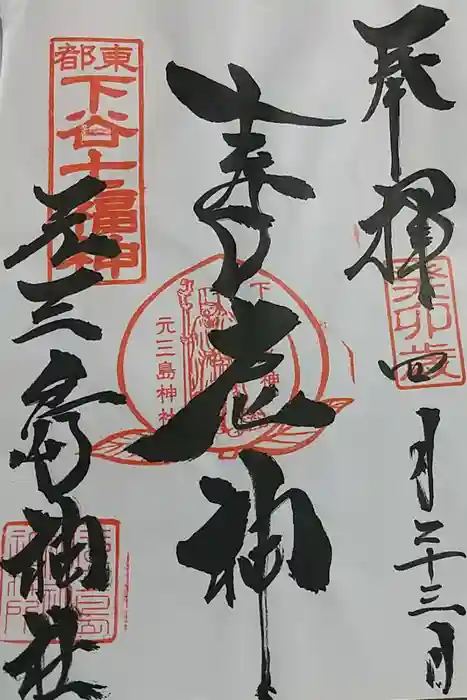 奉拝
癸卯歳
四月二十三日
寿老神
元三島神社
東都
下谷七福神
元三島神社